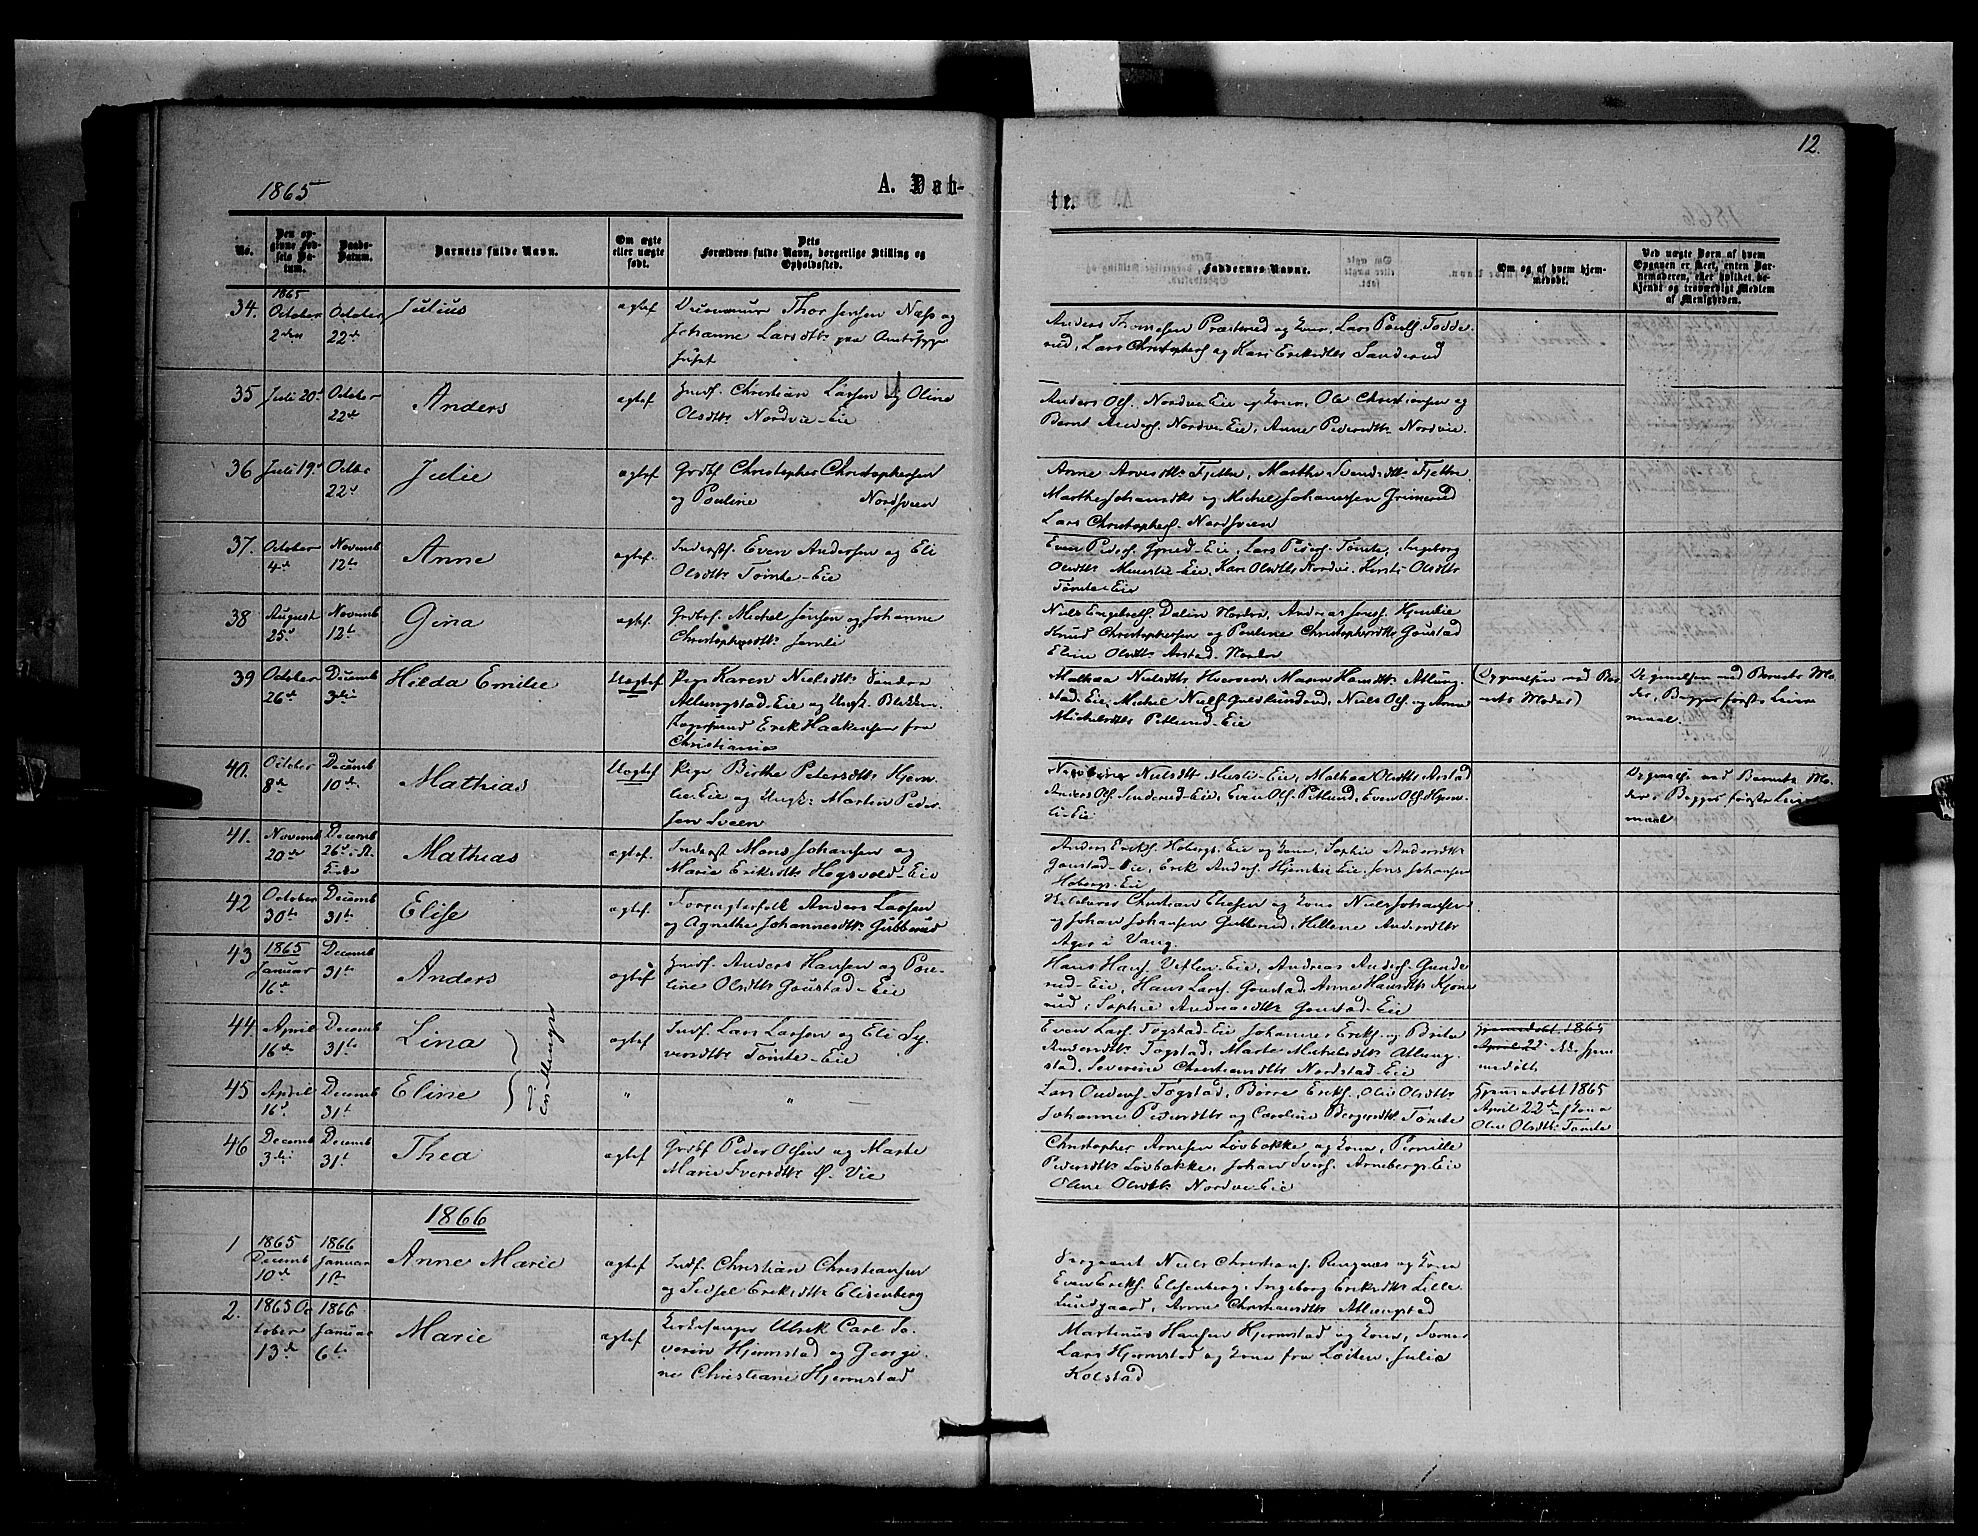 12.
1865
A. Døb-
te.
No.
Den op-
givne Fød-
sels Da-
tum.
Daabs-
Datum.
Barnets fulde Navn.
Om ægte
eller uægte
født.
Dets
Forældres fulde Navn, borgerlige Stilling og
Opholdssted.
Faddernes Navne.
Om og af hvem hjem-
medøbt.
Ved uægte Børn af hvem
Opgaven er skeet, enten Bar-
nemoderen, eller hvilket be-
kjendt og troværdigt Medlem
af Menigheden.
34. 1865 October 2den
October 22de
Julius
ægtef
Thor Jensen Næss og
Johanne Larsdtr paa
Anders Thomesen Præsterud og Kone, Lars Pouls.
rud, Lars Christophers. og Kari Eriksdtr Sanderud
35 Juli 20de
October 22de
Anders
ægtef.
Christian Larsen og Oline
Olsdtr Nordvie-Eie
Anders Ols. Nordvie-Eie og Kone, Ole Christiansen og
Bernt Anders. Nordvie-Eie, Anne Pedersdtr Nordvie.
36 Juli 19de
Octbr 22de
Julie
ægtef
Grdbf Christopher Christophersen
og Pauline Nordsveen
Anne Arnesdtr Fjetre, Marthe Svendsdtr Fjetre
Marthe Johansdtr og Michel Johannesen Grimerud
Lars Christophers. Nordsveen
37. October 4de
Novemb 12te
Anne
ægtef.
Inderstf. Even Andersen og Eli
Olsdtr Tomte-Eie
Even Peders. -Eie, Lars Peders. Tomte, Ingeborg
Olsdtr -Eie, Kari Olsdtr Nordvie, Kersti Olsdtr
Tomte-Eie
38 August 25de
Novemb 12te
Gina
ægtef.
Grdbrf. Michel Jensen og Johanne
Christophersdtr Jemli
Niels Engebrets. Dalen Nordre, Andreas Jens. Hjemlie
Knud Christophersen og Pauline Christophersdtr Goustad
Eline Olsdtr Arstad Nordre
39 October 26de
Decemb 3die
Hilda Emilie
Uægtef
Pige Karen Nielsdtr Søndre
Atlungstad-Eie og Ungk.
Erik Haakensen fra
Christiania
Mathea Nielsdtr Maren Hansdtr Atlung-
stad-Eie, Michel Niels. Guldlundend, Niels Ols. og Anne
Michelsdtr Pitlund-Eie
(Opgivelsen ved Bar-
nets Moder)
Opgivelsen ved Barnets Mo-
der, Begges første Leier-
maal.
40. October 8de
Decemb 10de
Mathias
Uægtef
Pige Birthe Petersdtr Hjem-
lie-Eie og Ungk: Martin Peder-
sen Sveen
Nielsdtr Musli-Eie, Mathea Olsdtr Arstad
Anders Ols. Sinderud-Eie, Even Ols. Pitlund, Even Ols. Hjem-
li-Eie
Opgivelse ved Barnets Mo-
der, Begges første Leier-
maal
41. Novemb 20de
Decemb 26de
Mathias
ægtef.
Inderst Mons Johansen og
Marie Eriksdtr Hogsvold-Eie
Anders Eriks. Hoberg-Eie og Kone, Sophie Andersdtr
Goustad-Eie, Erik Anders. Hjemlie Eie, Jens Johansen
Hobergs-Eie
42 October 30te
Decemb 31te
Elise
ægtef.
Forpagterfolk Anders Larsen
og Agnethe Johannesdtr Gubberud
Christian Eliesen og Kone Niels Johansen
og Johan Johansen Gubberud, Hellene Andersdtr
Ager i Vang.
43 1865 Januar 16de
Decemb 31te
Anders
ægtef
Inds. Anders Hansen og Pou-
line Olsdtr Goustad-Eie
Hans Hans. Vesten-Eie, Andreas Anders. Gunde-
rud-Eie, Hans Lars. Goustad, Anne Hansdtr Kjone-
rud, Sophie Andersdtr Goustad-Eie
44. April 16de
Decemb 31te
Lina
Tvillinger
ægtef
Inds. Lars Larsen og Eli Sy-
versdtr Tomte-Eie
Even Lars. Togstad-Eie Johannes Eriks. og Brita
Andersdtr Togstad, Marte Michelsdtr Atlung-
stad, Severine Christiansdtr Nordstad-Eie
Hjemmedøbt 1865
April 22 ikke hjem-
medøbt
45 April 16de
Decemb 31te
Eline
" " —
Lars Togstad, Børre Eriks., Olia Olsdtr
Johanne Pedersdtr og Caroline Borgersdtr Tomte
Hjemmedøbt 1865
April 22de af Kone
Olea Olsdtr Tomte
46 Decemb 3die
Decemb 31te
Thea
ægtef
Grdbf Peder Olsen og Marte
Marie Iversdtr Ø. Vie
Christopher Arnesen Løvbakke og Kone, Pernille
Pedersdtr Løvbakke, Johan Ivers. Arnebergs-Eie
Oline Olsdtr Nordvie-Eie
1866
1 1865 Decemb 10de
1866 Januar 1ste
Anne Marie
ægtef
Inds. Christian Christiansen
og Sidsel Eriksdtr Elisenberg
Sergeant Niels Christians. Ringnes og Kone
Even Eriks. Elisenberg, Ingeborg Eriksdtr Lille-
Lundgaard, Anne Christiansdtr Atlungstad
2. 1865 October 13de
1866 Januar 6te
Marie
ægtef
Kirkesanger Ulrik Carl Se-
verin Hjermstad og Georgi-
ne Christiane Hjermstad
Martinus Hansen Hjermstad og Kone,
Lars Hjermstad og Kone fra Løiten, Julie
Kolstad